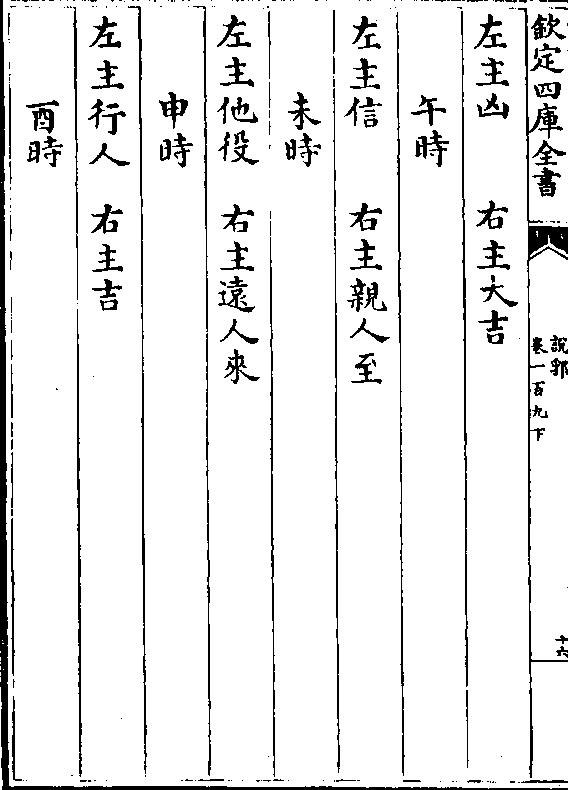 欽定四庫全書
說郛
卷一百九下
十六
左主凶　右主大吉
午時
左主信　右主親人至
未時
左主他役　右主遠人來
申時
左主行人　右主吉
酉時